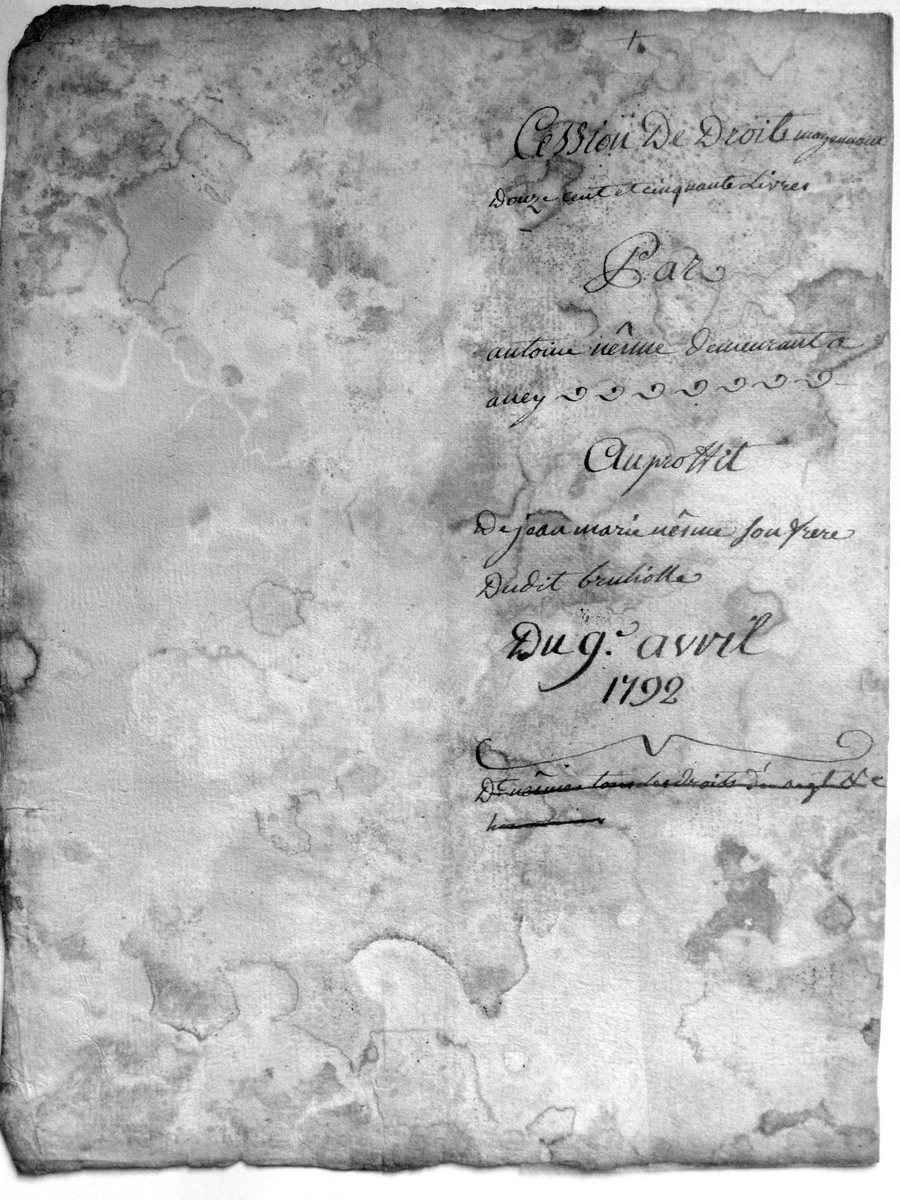 Cession De Droits moyennant
Douze cent et cinquante Livres
Par
antoine nêsme demeurant a
aney
Auproffit
De jean marie nêsme son frere
Dudit bruliolle
Du 9.e avril
1792
tous les droits